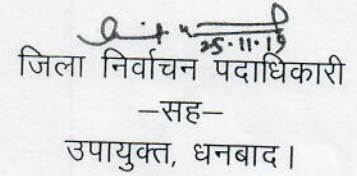 25.11.19
जिला निर्वाचन पदाधिकारी
–सह–
उपायुक्त, धनबाद।